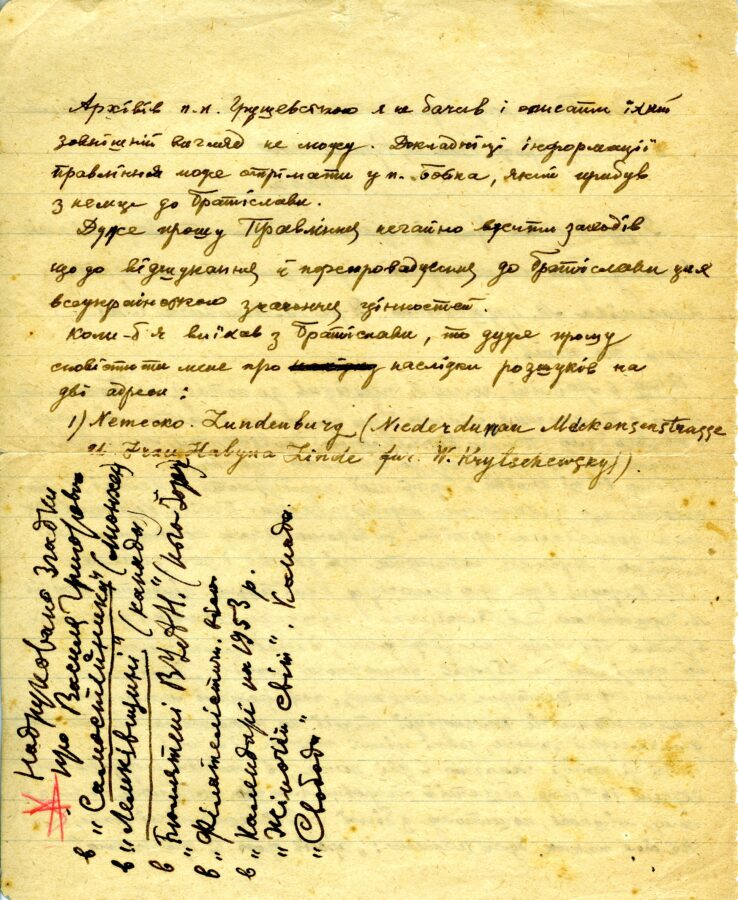 Архівів п.п. Грушевського я не бачив і описати їхній
зовнішній вигляд не можу. Докладніці інформації
Правління може отрімати у п. Бовка, який прибув
з нєммце до Братіслави.
Дуже прошу Правління негайно вжити заходів
що до відшукання й перепровадження до Братіслави цих
всеукраїнського значення цінностей.
Коли-б я виїхав з Братіслави, то дуже прошу
сповістити мене про наслідки розшуків на
дві адреси:
1) Nemecko. Lundenburg (Niederdunau Mackensenstrasse
Frau Halyna Linde fur. W. Krytschewskyj).
Надруковано згадки
про Василя Григоровича
в "Самостійнику" (Мюнхен)
в "Лемківщині" (Канада)
в Бюлятені ВУАН. (Нью Йорк)
в "Філятелістич.
в "Календарі на 1953 р.
"Жіночій світ", Канада.
"Свобода"